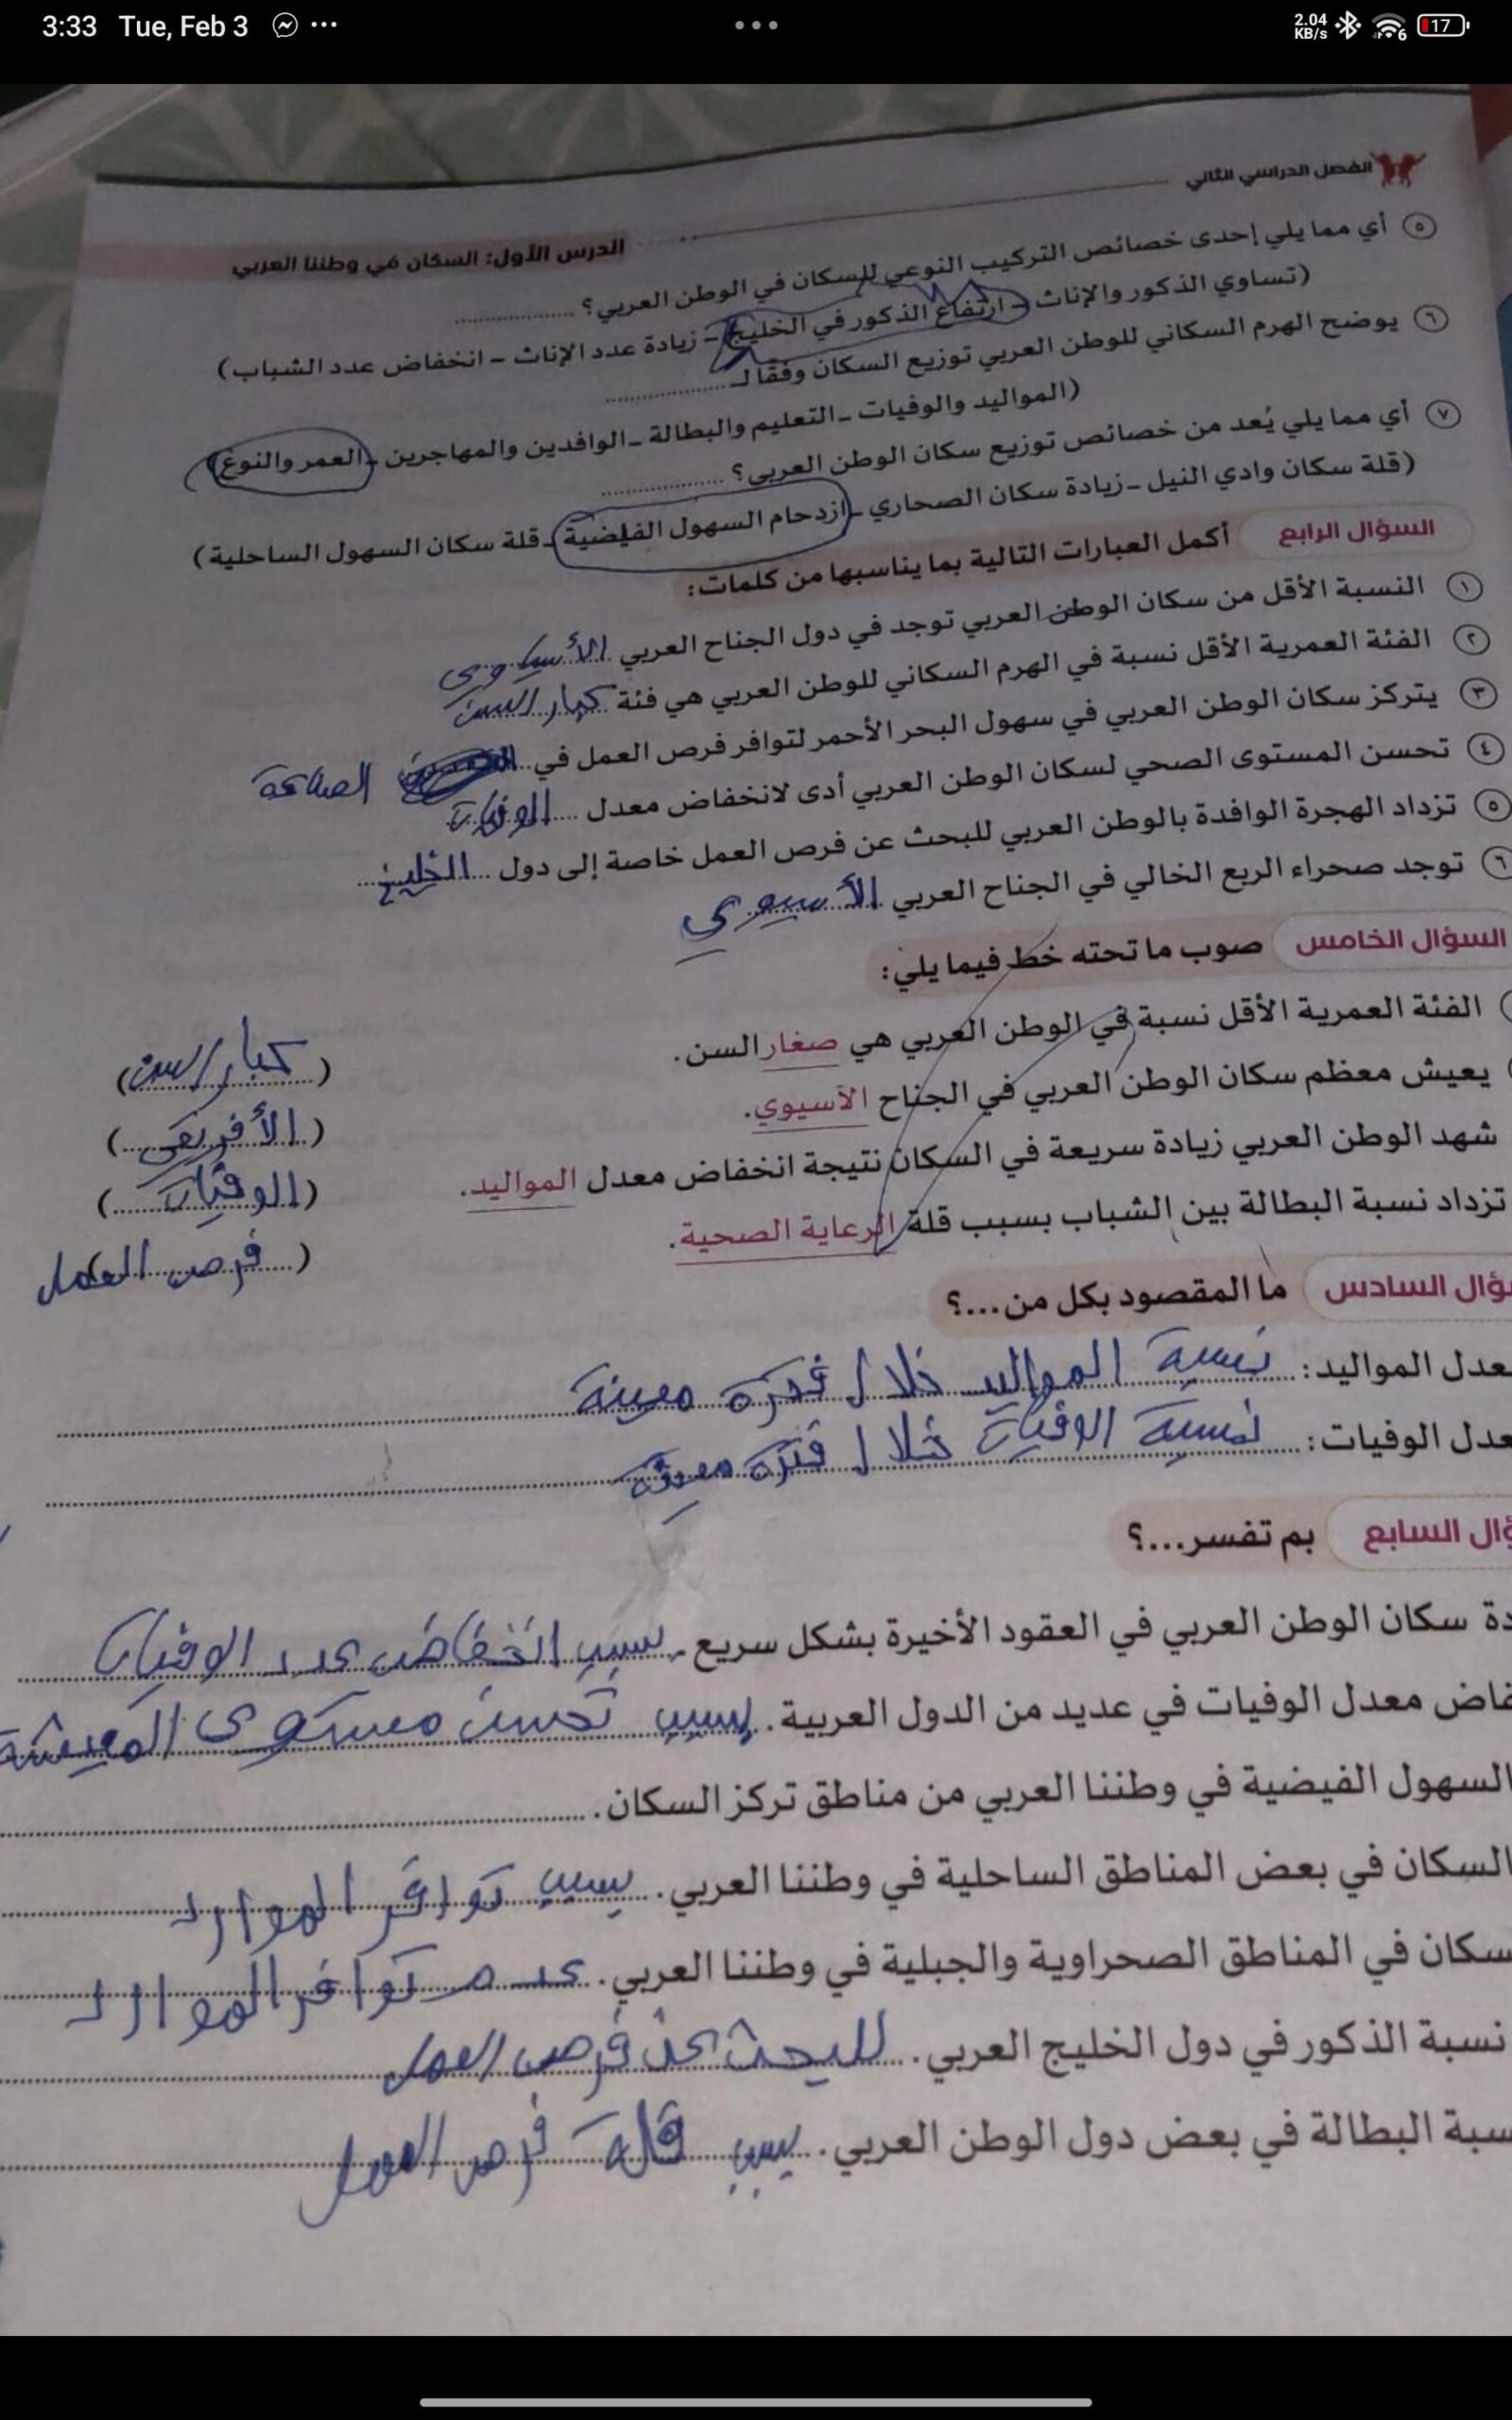 3:33 Tue, Feb 3
2.04 KB/s
17
الفصل الدراسي الثاني
الدرس الأول: السكان في وطننا العربي
٥ أي مما يلي إحدى خصائص التركيب النوعي للسكان في الوطن العربي؟
(تساوي الذكور والإناث - ارتفاع الذكور في الخليج - زيادة عدد الإناث - انخفاض عدد الشباب)
٦ يوضح الهرم السكاني للوطن العربي توزيع السكان وفقًا لـ
(المواليد والوفيات - التعليم والبطالة - الوافدين والمهاجرين - العمر والنوع)
٧ أي مما يلي يُعد من خصائص توزيع سكان الوطن العربي؟
(قلة سكان وادي النيل - زيادة سكان الصحاري - ازدحام السهول الفيضية - قلة سكان السهول الساحلية)
السؤال الرابع أكمل العبارات التالية بما يناسبها من كلمات:
١ النسبة الأقل من سكان الوطن العربي توجد في دول الجناح العربي الأسيوى
٢ الفئة العمرية الأقل نسبة في الهرم السكاني للوطن العربي هي فئة كبار السن
٣ يتركز سكان الوطن العربي في سهول البحر الأحمر لتوافر فرص العمل في
٤ تحسن المستوى الصحي لسكان الوطن العربي أدى لانخفاض معدل الوفيات
٥ تزداد الهجرة الوافدة بالوطن العربي للبحث عن فرص العمل خاصة إلى دول الخليج
٦ توجد صحراء الربع الخالي في الجناح العربي الأسيوي
السؤال الخامس صوب ما تحته خط فيما يلي:
الفئة العمرية الأقل نسبة في الوطن العربي هي صغار السن. (كبار السن)
يعيش معظم سكان الوطن العربي في الجناح الآسيوي. (الأفريقى)
شهد الوطن العربي زيادة سريعة في السكان نتيجة انخفاض معدل المواليد. (الوفيات)
تزداد نسبة البطالة بين الشباب بسبب قلة الرعاية الصحية. (فرص العمل)
ؤال السادس ما المقصود بكل من...؟
عدل المواليد: نسبة المواليد خلال فترة معينة
عدل الوفيات: نسبة الوفيات خلال فترة معينة
ؤال السابع بم تفسر...؟
دة سكان الوطن العربي في العقود الأخيرة بشكل سريع. بسبب انخفاض عدد الوفيات
فاض معدل الوفيات في عديد من الدول العربية. بسبب تحسن مستوى المعيشة
السهول الفيضية في وطننا العربي من مناطق تركز السكان.
السكان في بعض المناطق الساحلية في وطننا العربي. بسبب توافر الموارد
سكان في المناطق الصحراوية والجبلية في وطننا العربي. عدم توافر الموارد
نسبة الذكور في دول الخليج العربي. للبحث عن فرص العمل
سبة البطالة في بعض دول الوطن العربي. بسبب قلة فرص العمل